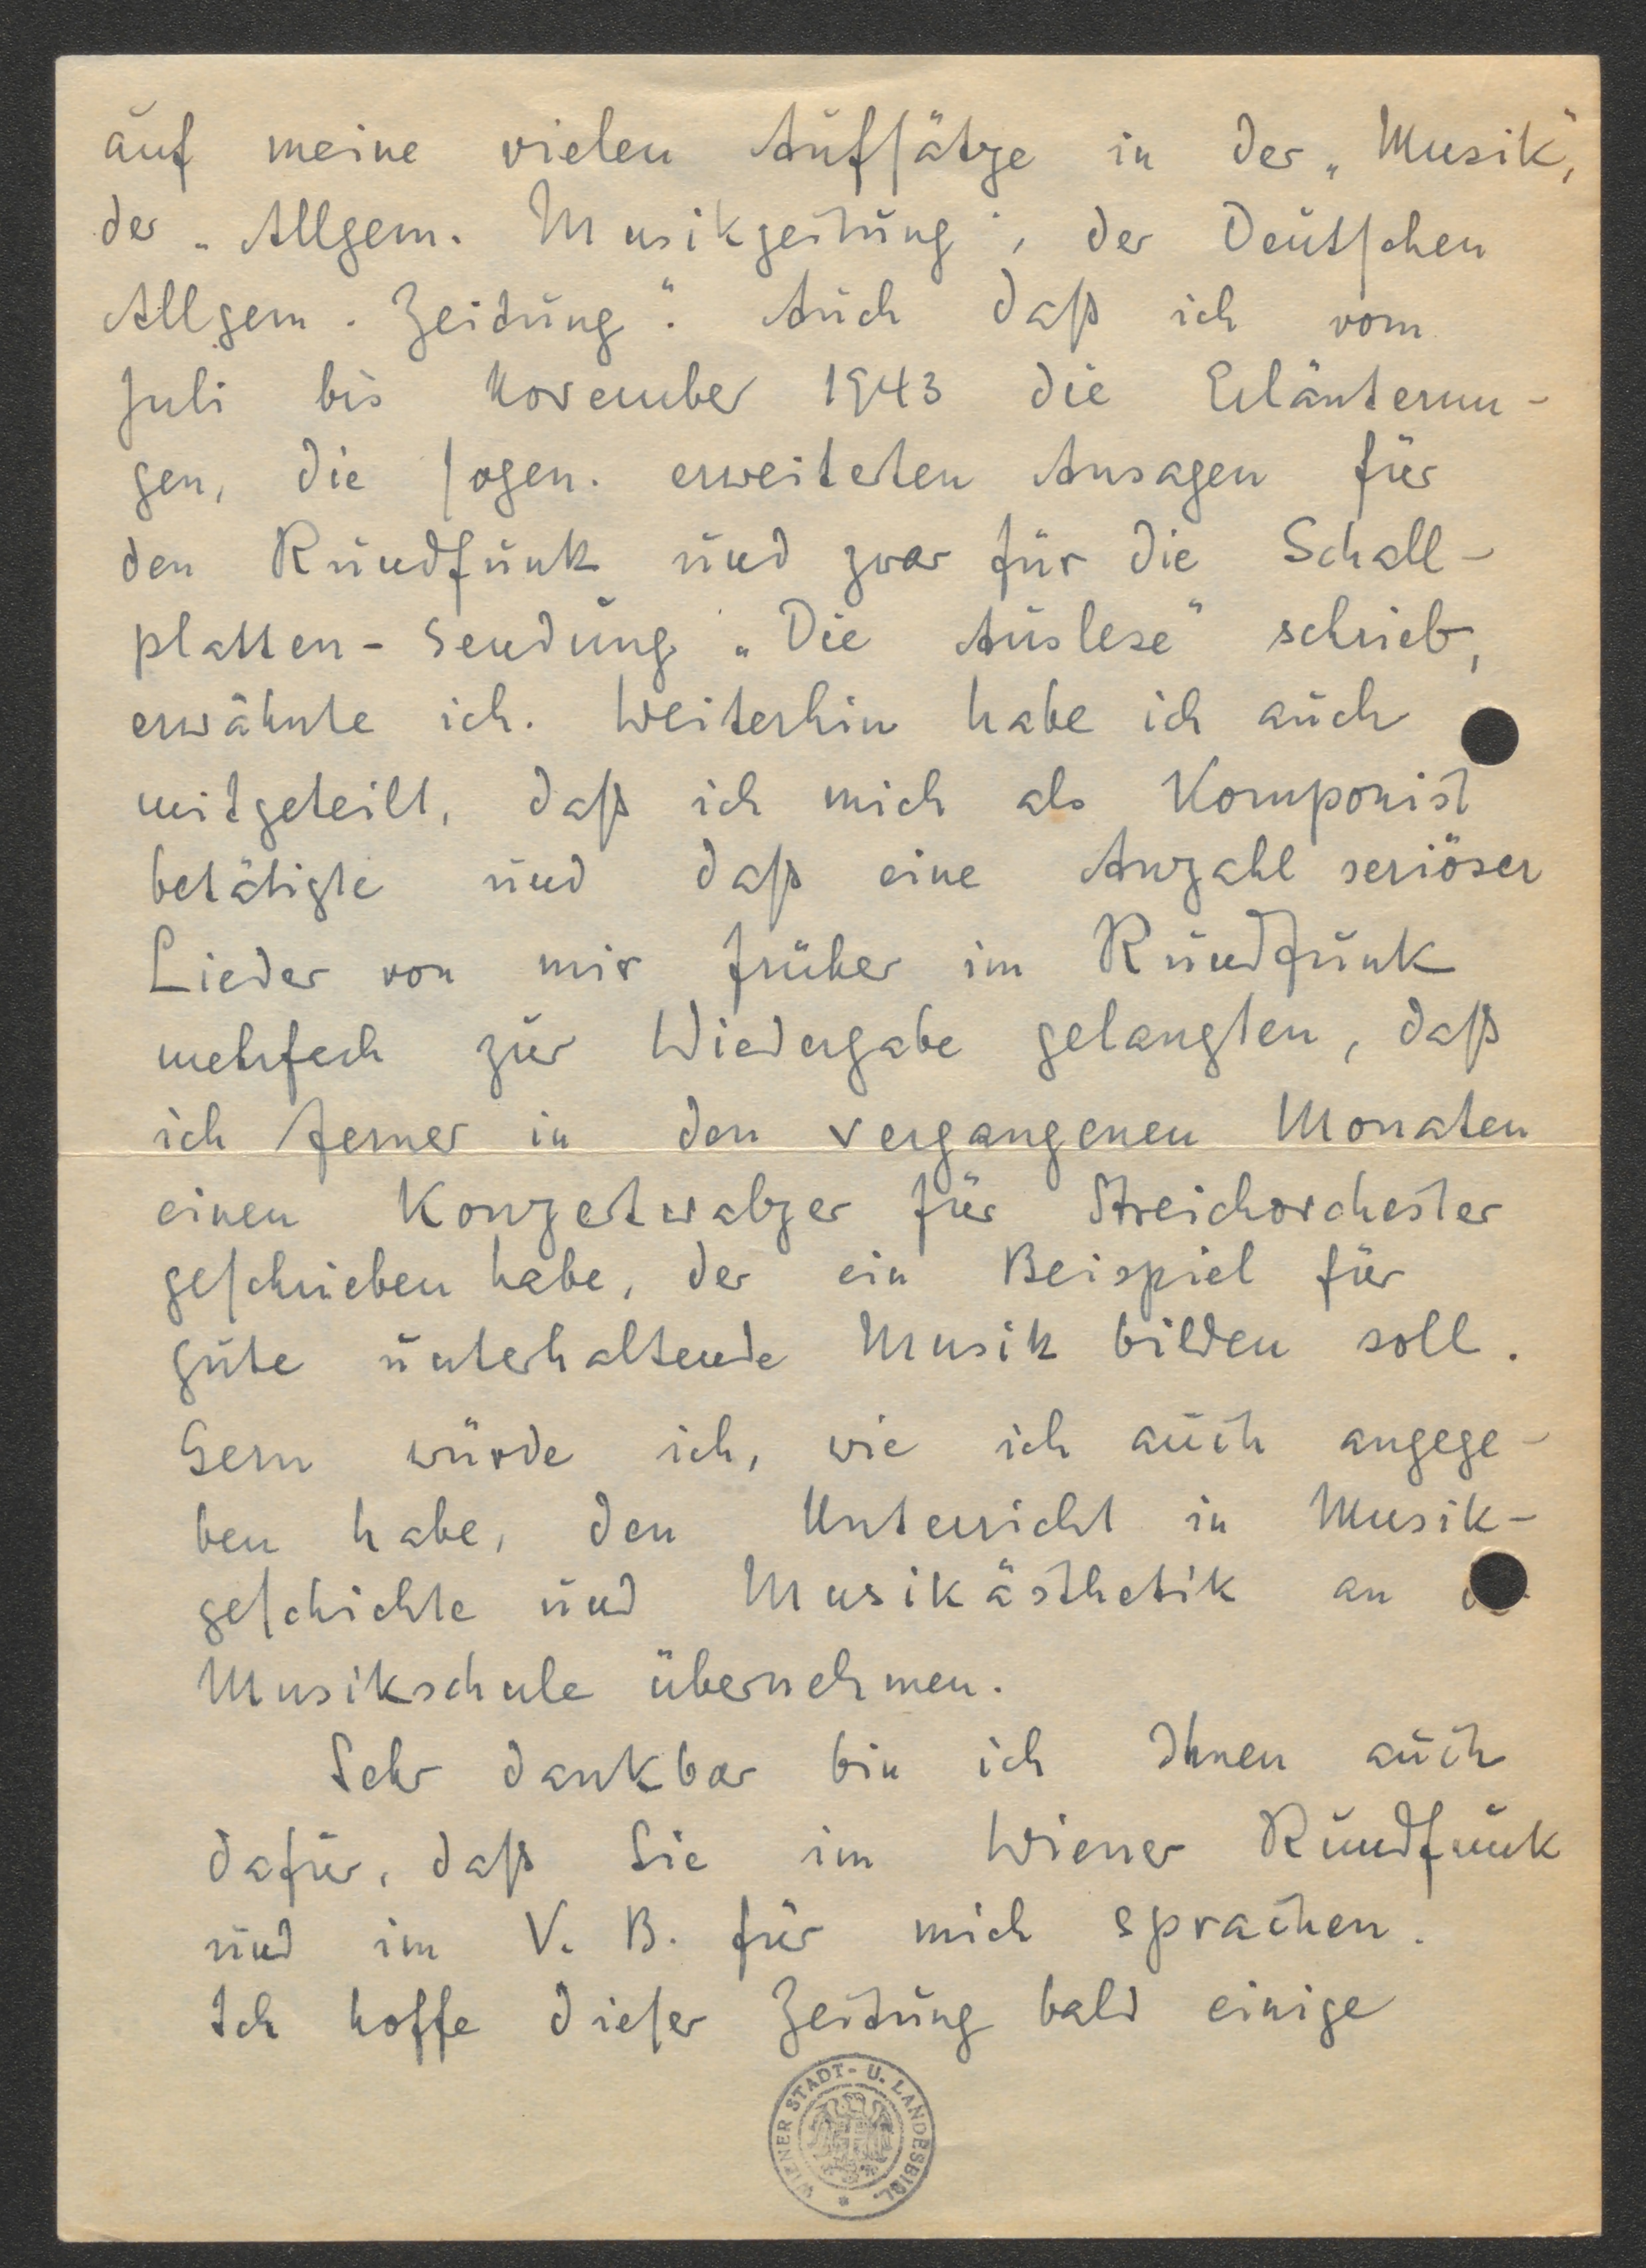 auf meine vielen Aufsätze in der „Musik",
der „Allgem. Musikzeitung", der Deutschen
Allgem. Zeitung". Auch daß ich vom
Juli bis November 1943 die Erläuterun-
gen, die sogen. erweiterten Ansagen für
den Rundfunk und zwar für die Schall-
platten-Sendung „Die Auslese" schrieb,
erwähnte ich. Weiterhin habe ich auch
mitgeteilt, daß ich mich als Komponist
betätigte und daß eine Anzahl seriöser
Lieder von mir früher im Rundfunk
mehrfach zur Wiedergabe gelangten, daß
ich ferner in den vergangenen Monaten
einen Konzertwalzer für Streichorchester
geschrieben habe, der ein Beispiel für
gute unterhaltende Musik bilden soll.
Gern würde ich, wie ich auch angege-
ben habe, den Unterricht in Musik-
geschichte und Musikästhetik an
Musikschule übernehmen.
Sehr dankbar bin ich Ihnen auch
dafür, daß Sie im Wiener Rundfunk
und im V. B. für mich sprachen.
Ich hoffe dieser Zeitung bald einige
WIENER STADT- U. LANDESBIBL.